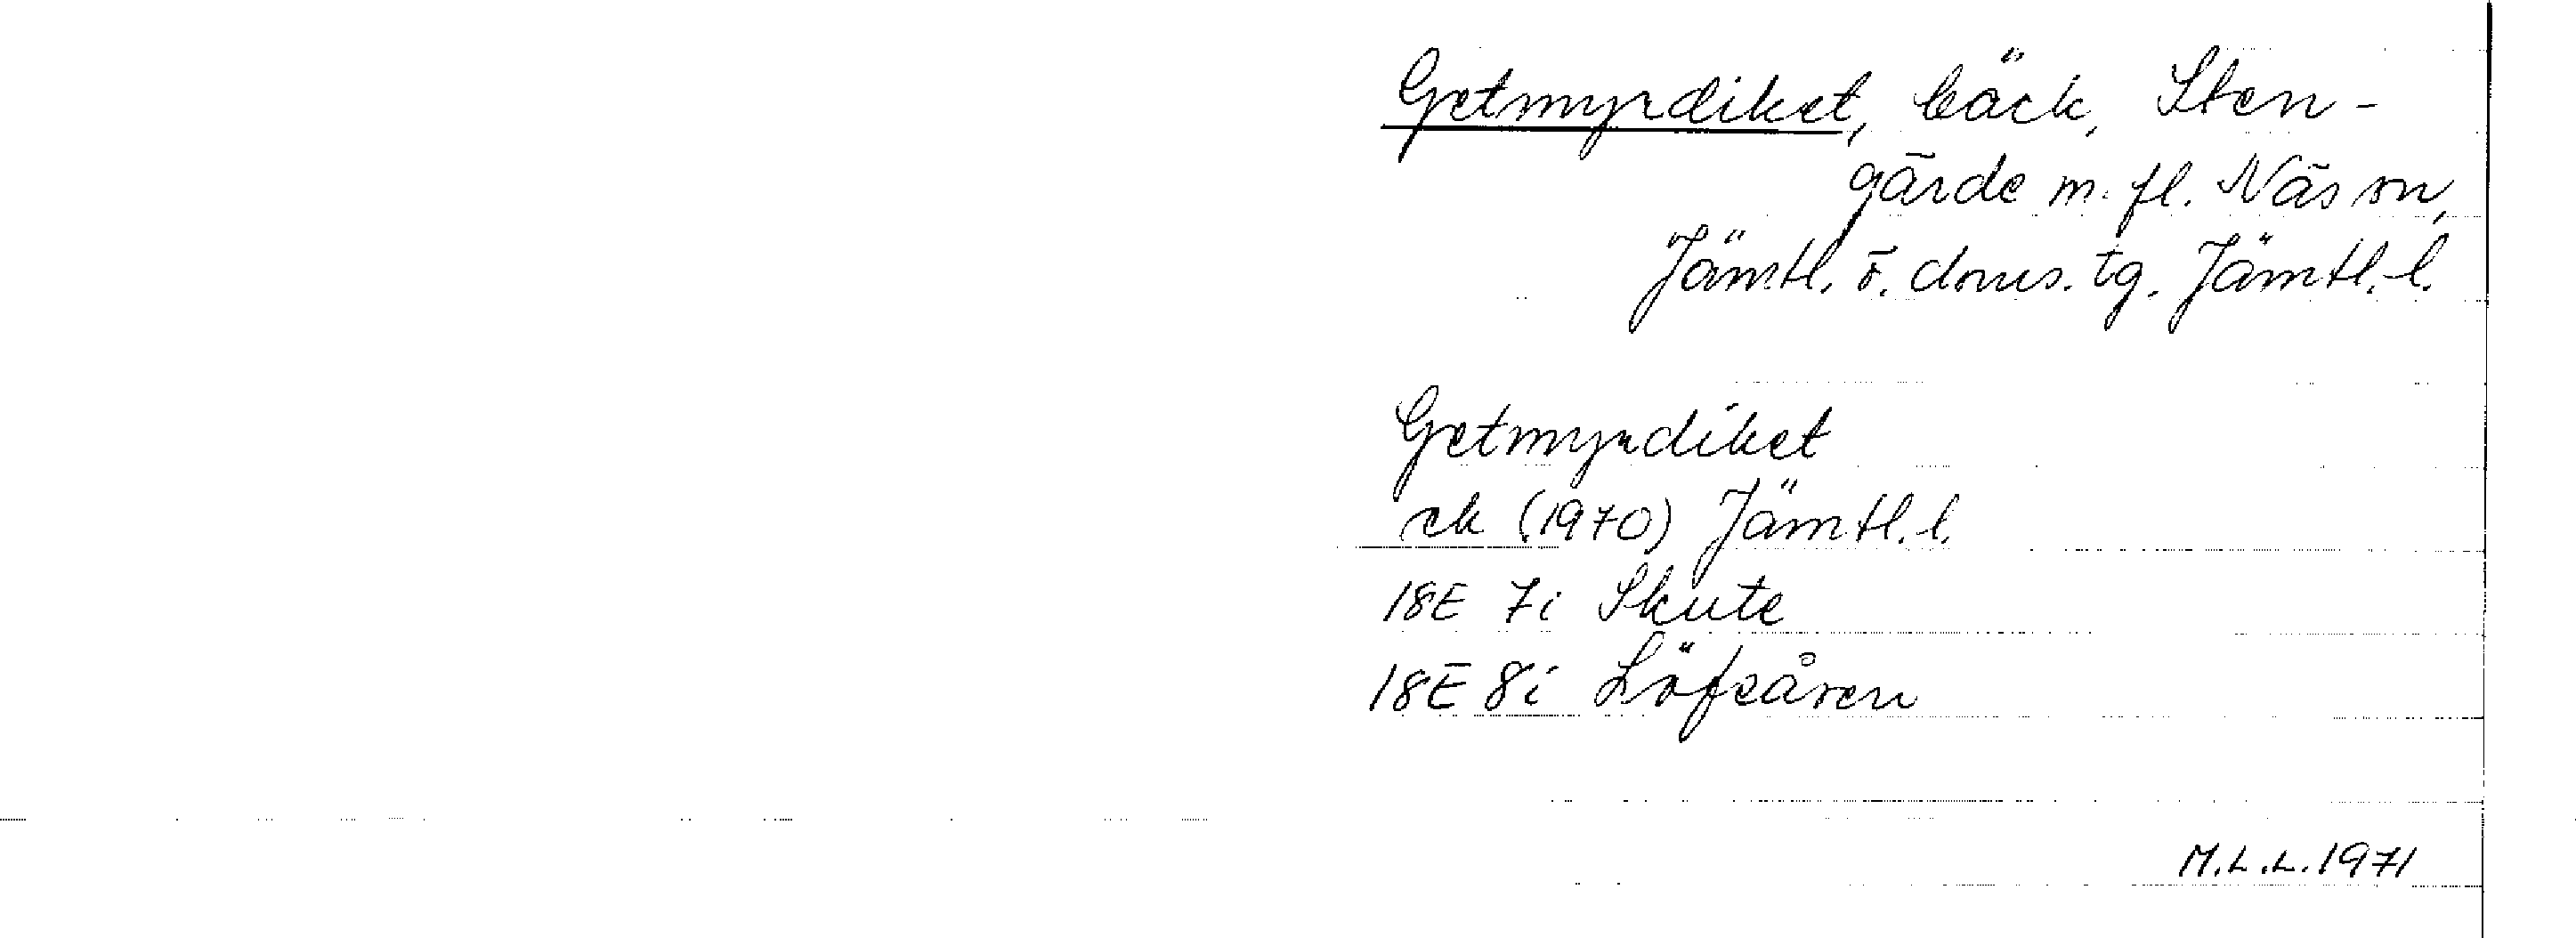 Getmyrdiket, bäck, Sten-
gärde m. fl. Näs sn,
Jämtl. ö. doms. tg. Jämtl. l.
Getmyrdiket
ek (1970) Jämtl. l.
18E 7i Skute
18E 8i Löfsåsen
M.L.L. 1971